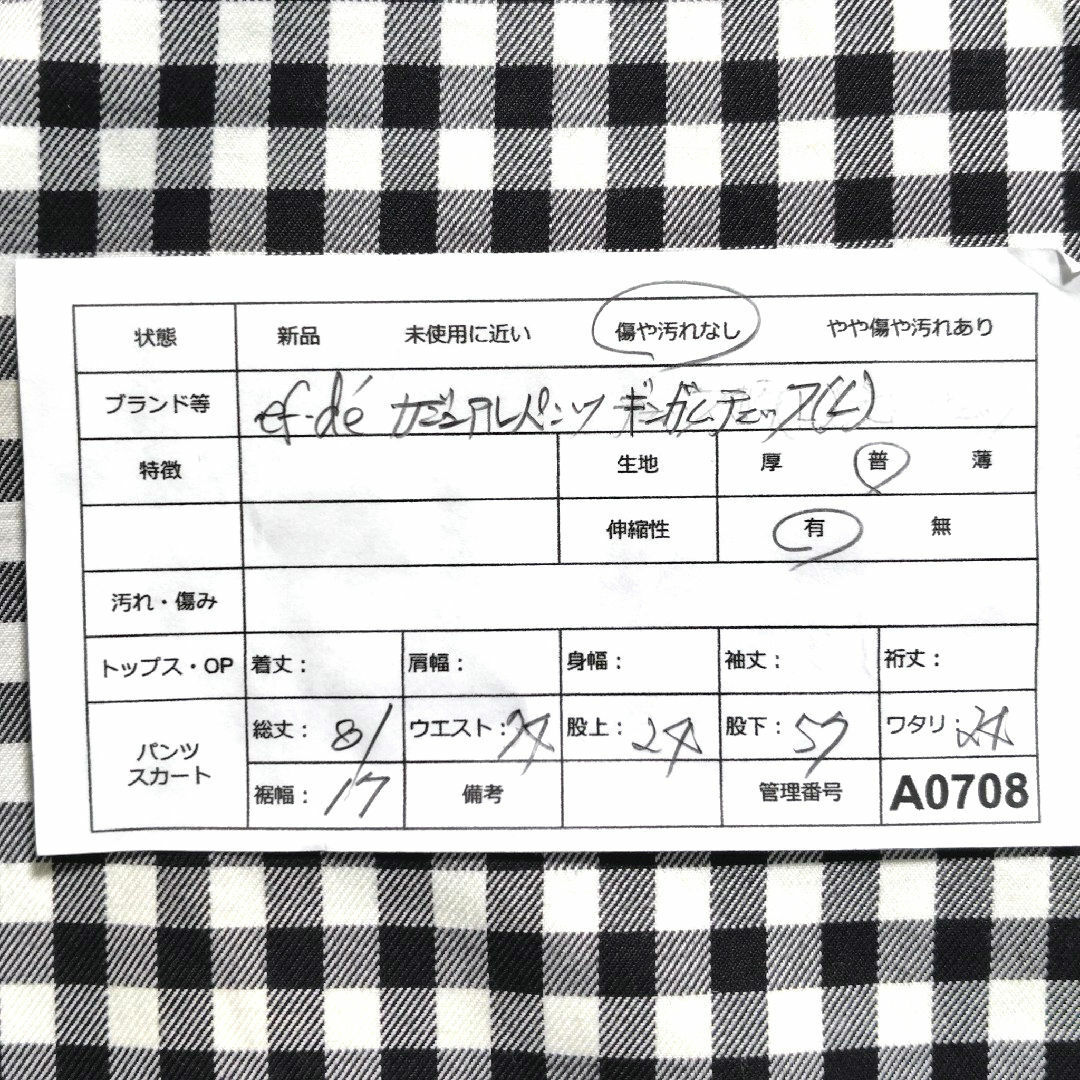 状態 新品 未使用に近い 傷や汚れなし やや傷や汚れあり
ブランド等 ef-dé カジュアルパンツ ギンガムチェック(L)
特徴 生地 厚 普 薄
伸縮性 有 無
汚れ・傷み
トップス・OP 着丈: 肩幅: 身幅: 袖丈: 裄丈:
パンツ スカート 総丈: 81 ウエスト: 股上: 24 股下: 57 ワタリ: 24
裾幅: 17 備考 管理番号 A0708